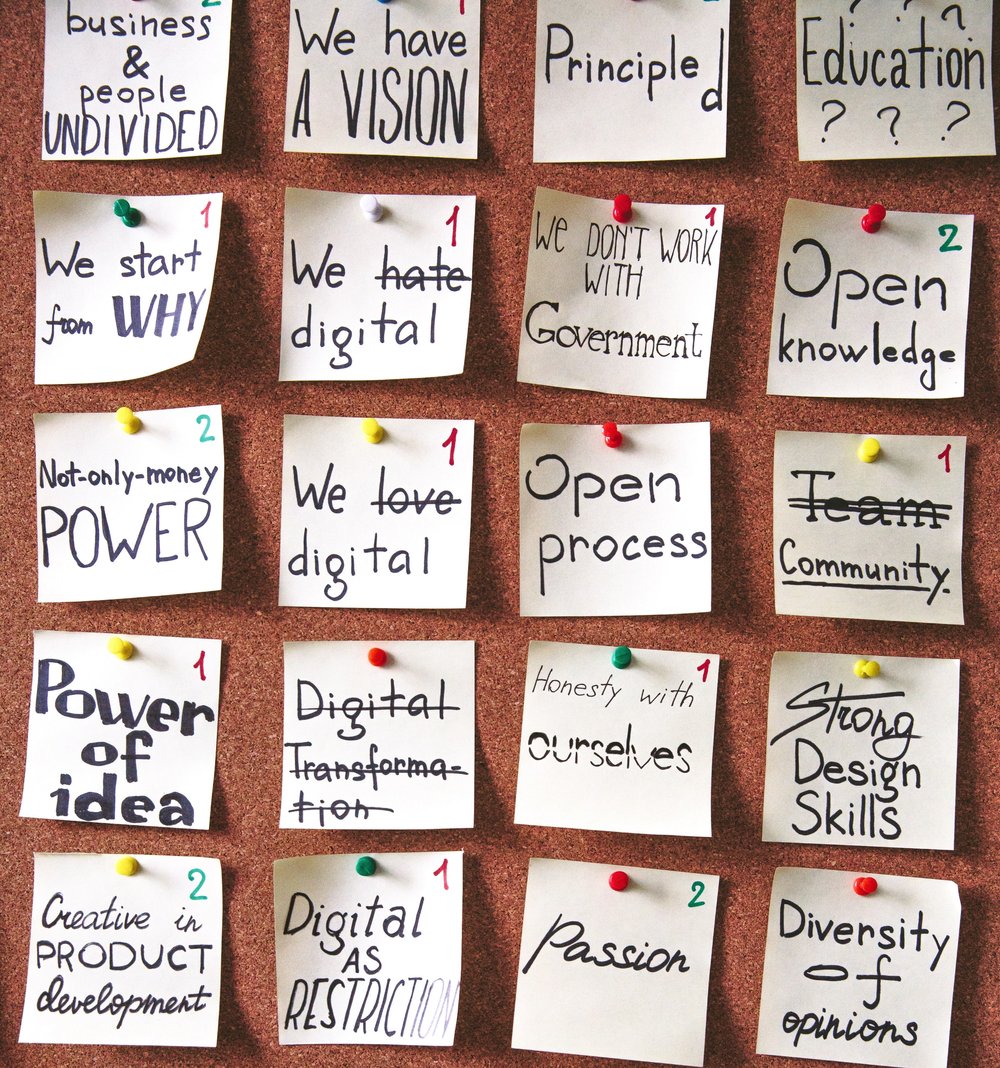 2
business
&
people
UNDIVIDED
1
We have
A VISION
Principle
d
? ? ?
Education
? ? ?
1
We start
from WHY
1
We hate
digital
1
WE DON'T WORK
WITH
Government
2
Open
knowledge
2
Not-only-money
POWER
1
We love
digital
Open
process
1
Team
Community.
1
Power
of
idea
Digital
Transforma-
tion
1
Honesty with
ourselves
Strong
Design
Skills
2
Creative in
PRODUCT
development
1
Digital
AS
RESTRICTION
2
Passion
Diversity
of
opinions